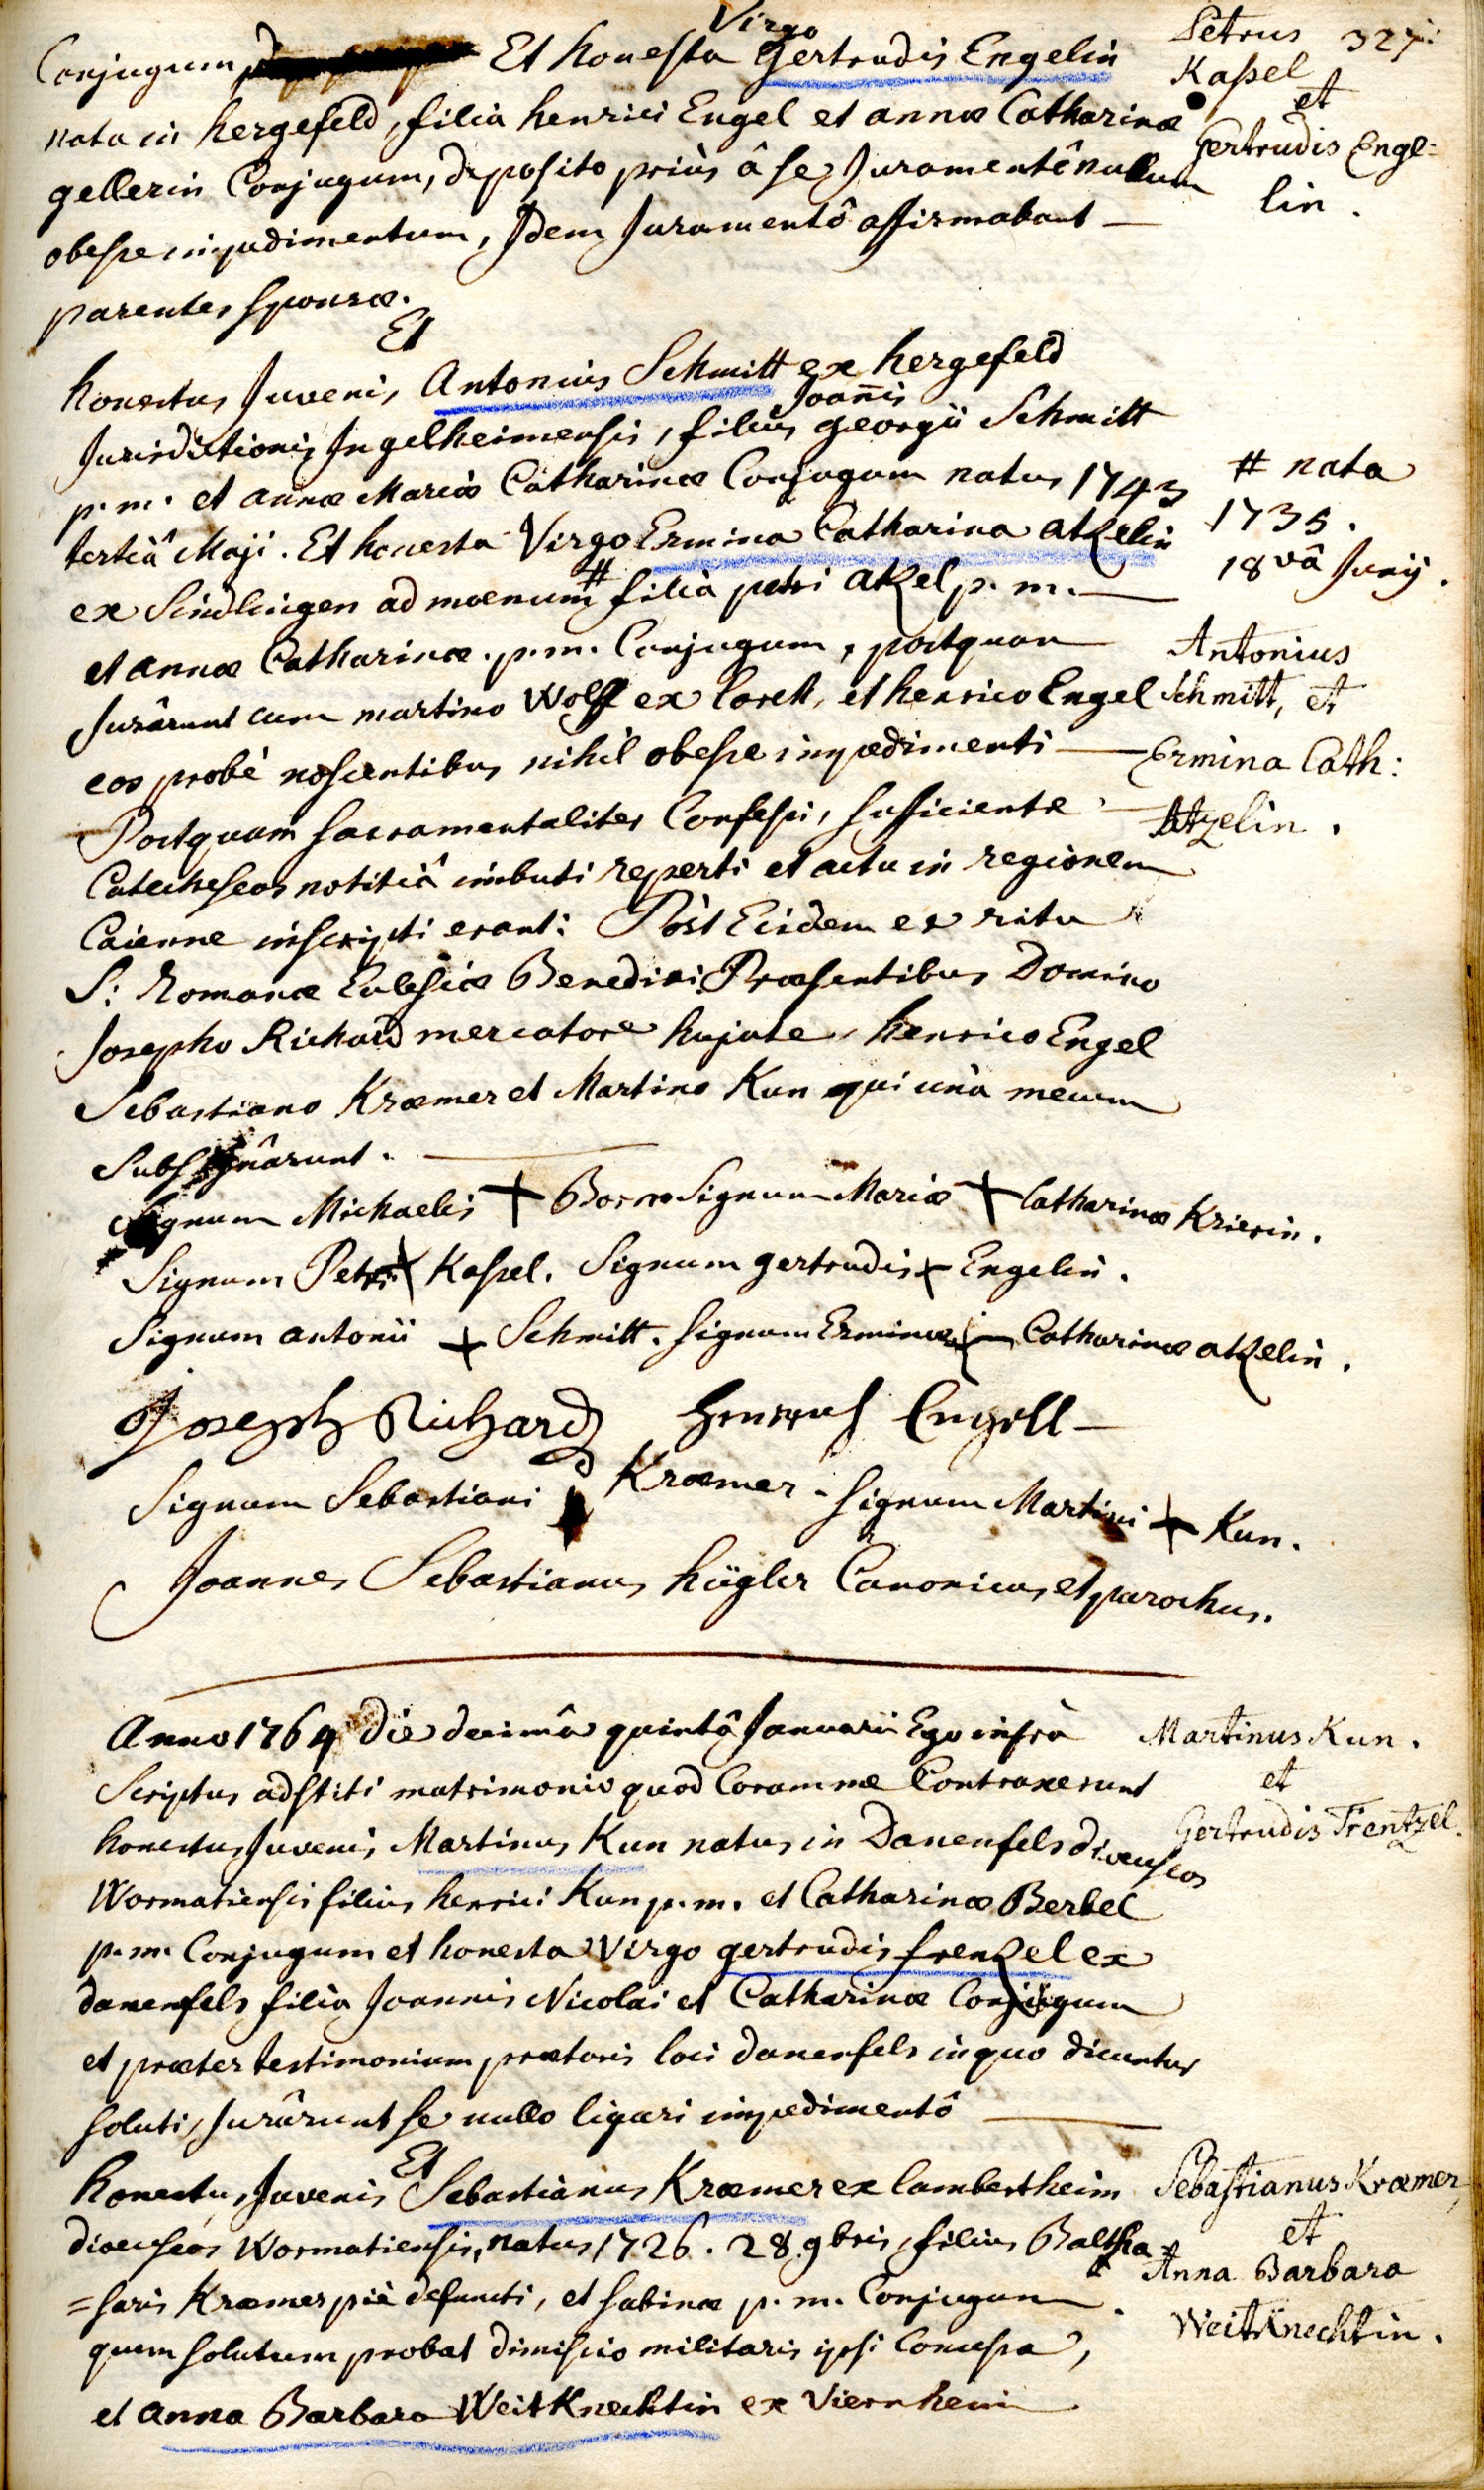 327:
Conjugum, Et honesta Virgo Gertrudis Engelin
nata in hergefeld, filia henrici Engel et annæ Catharinæ
gellerin Conjugum, deposito priùs â se Juramentô nullum
obesse impedimentum, Idem Juramentô affirmabant —
parentes sponsæ.
Petrus
Kassel
et
Gertrudis Enge=
lin.
Et
honestus Juvenis Antonius Schmitt ex hergefeld
Jurisdictionis Ingelheimensis, filius Joannis georgii Schmitt
p. m. et annæ Mariæ Catharinæ Conjugum natus 1743
tertiâ Maji. Et honesta Virgo Ermina Catharina atzelin
ex Sindlingen ad moenum # filia petri atzel p. m. —
et annæ Catharinæ p. m. Conjugum, postquam
Jurârunt cum martino Wolff ex lorch, et henrico Engel
eos probè noscentibus nihil obesse impedimenti —
# nata
1735.
18vâ Junij.
Antonius
Schmitt, et
Ermina Cath:
Atzelin.
Postquam sacramentaliter Confessi, sufficiente
Catecheseos notitiâ imbuti reperti et actu in regionem
Caienne inscripti erant: Pòst Eisdem ex ritu
S: Romanæ Ecclesiæ Benedixi Præsentibus Domino
Josepho Richard mercatore hujate, henrico Engel
Sebastiano Kræmer et Martino Kun qui unà mecum
Subsignârunt.
Signum Michaelis + Born Signum Mariæ + Catharinæ Krierin.
Signum Petri + Kassel. Signum gertrudis + Engelin.
Signum antonii + Schmitt. Signum Erminæ + Catharinæ atzelin.
Joseph Richard Henrich Engell —
Signum Sebastiani Kræmer. Signum Martini + Kun.
Joannes Sebastianus hügler Canonicus et parochus.
Anno 1764 die decimâ quintâ Januarii Ego infrà
Scriptus adstiti matrimonio quod Coram me Contraxerunt
honestus Juvenis Martinus Kun natus in Danenfels dioeceseos
Wormatiensis filius henrici Kun p. m. et Catharinæ Berbel
p. m. Conjugum et honesta Virgo gertrudis frenzel ex
danenfels filia Joannis Nicolai et Catharinæ Conjugum
et præter testimonium prætoris loci danenfels in quo dicuntur
soluti, Jurârunt se nullo ligari impedimentô —
Martinus Kun.
et
Gertrudis Frentzel.
Et
honestus Juvenis Sebastianus Kræmer ex lambertheim
dioeceseos Wormatiensis, natus 1726. 28 9bris, filius Baltha
=saris Kræmer piè defuncti, et sabinæ p. m. Conjugum
quem solutum probat dimissio militaris ipsi Concessa,
et anna Barbara WeitKnechtin ex Viernheim
Sebastianus Kræmer,
et
Anna Barbara
WeitKnechtin.